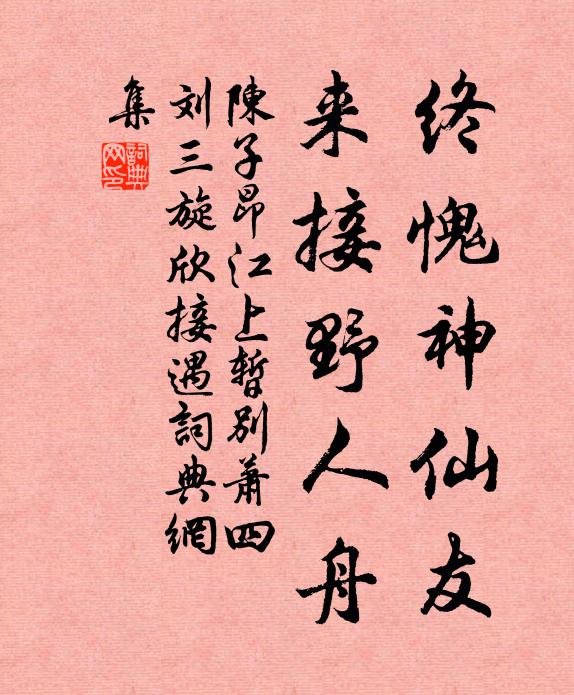 终愧神仙友
来接野人舟
陳子昂江上暫别萧四
刘三旋欣接遇詞典網
集
詞典
网印